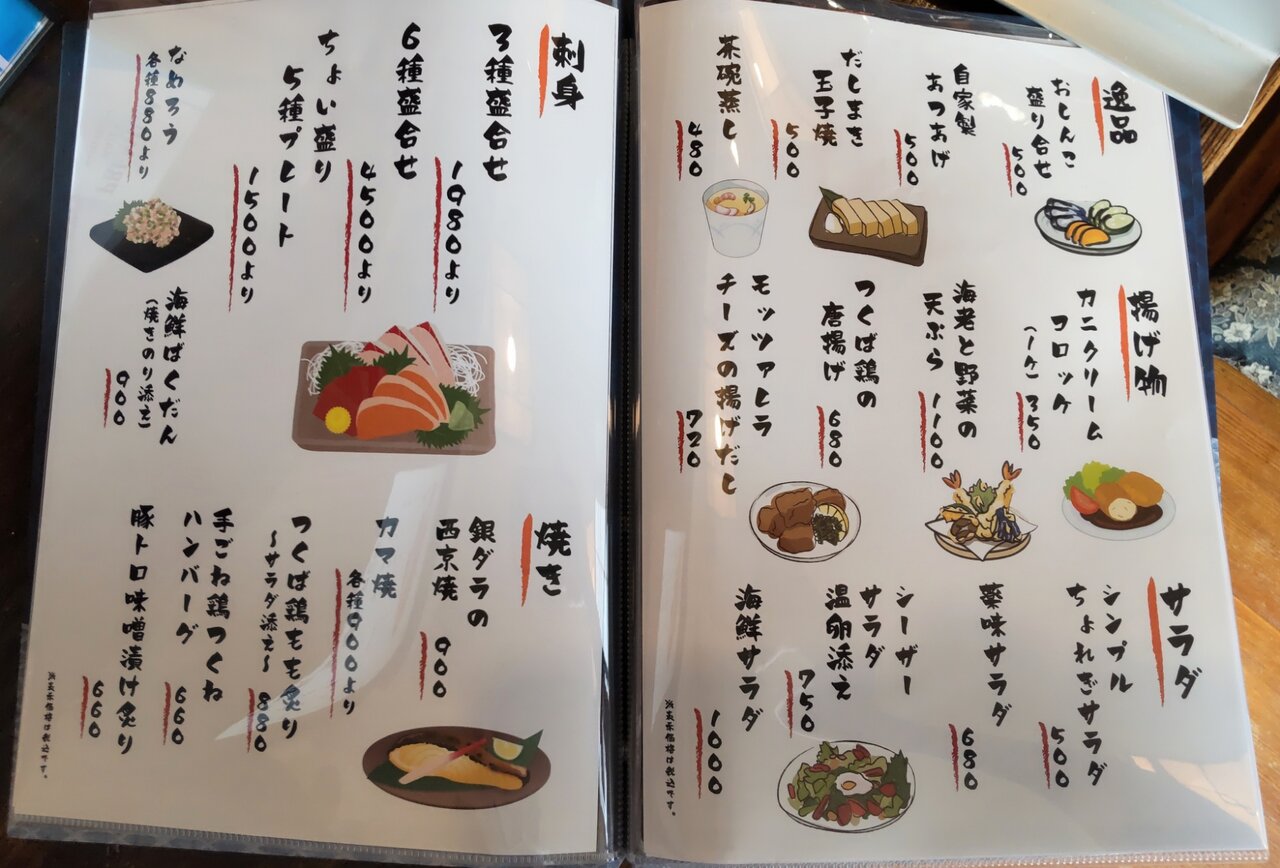 逸品
おしんこ
盛り合せ
500
自家製
あつあげ
500
だしまき
玉子焼
500
茶碗蒸し
480
揚げ物
カニクリーム
コロッケ
(一ケ)
350
海老と野菜の
天ぷら
1100
つくば鶏の
唐揚げ
680
モッツアレラ
チーズの揚げだし
720
サラダ
シンプル
ちょれぎサラダ
500
薬味サラダ
680
シーザー
サラダ
温卵添え
750
海鮮サラダ
1000
※表示価格は税込です。
刺身
3種盛合せ
1980より
6種盛合せ
4500より
ちょい盛り
5種プレート
1500より
なめろう
各種880より
海鮮ばくだん
(焼きのり添え)
900
焼き
銀ダラの
西京焼
900
カマ焼
各種900より
つくば鶏もも炙り
～サラダ添え～
880
手ごね鶏つくね
ハンバーグ
660
豚トロ味噌漬け炙り
660
※表示価格は税込です。